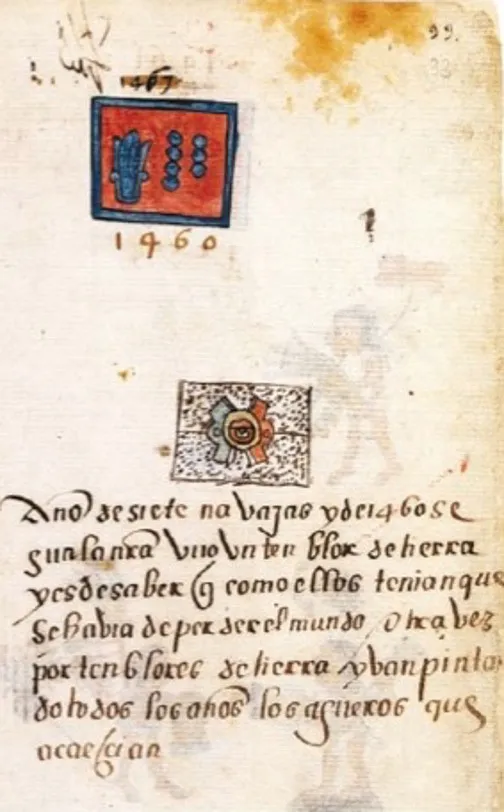 99.
1467
1460
Año de siete navajas y de 1460 se
gun la nrā vuo vn tenblor de tierra
y es de saber q̄ como ellos tenian que
se havia de perder el mundo otra vez
por tenblores de tierra yvan pintan
do todos los años los agueros que
acaeçian